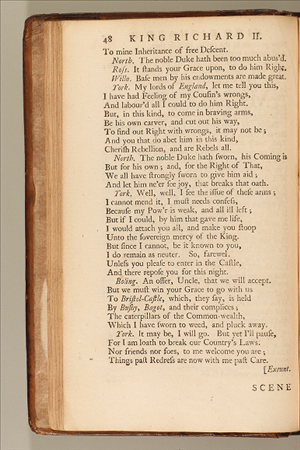 48 KING RICHARD II.
To mine Inheritance of free Descent.
North. The noble Duke hath been too much abus'd.
Ross. It stands your Grace upon, to do him Right.
Willo. Base men by his endowments are made great.
York. My lords of England, let me tell you this,
I have had Feeling of my Cousin's wrongs,
And labour'd all I could to do him Right.
But, in this kind, to come in braving arms,
Be his own carver, and cut out his way,
To find out Right with wrongs, it may not be;
And you that do abet him in this kind,
Cherish Rebellion, and are Rebels all.
North. The noble Duke hath sworn, his Coming is
But for his own; and, for the Right of That,
We all have strongly sworn to give him aid;
And let him ne'er see joy, that breaks that oath.
York. Well, well, I see the issue of these arms;
I cannot mend it, I must needs confess,
Because my Pow'r is weak, and all ill left;
But if I could, by him that gave me life,
I would attach you all, and make you stoop
Unto the sovereign mercy of the King.
But since I cannot, be it known to you,
I do remain as neuter. So, farewel.
Unless you please to enter in the Castle,
And there repose you for this night.
Boling. An offer, Uncle, that we will accept.
But we must win your Grace to go with us
To Bristol-Castle, which, they say, is held
By Bushy, Bagot, and their complices;
The caterpillars of the Common-wealth,
Which I have sworn to weed, and pluck away.
York. It may be, I will go. But yet I'll pause,
For I am loath to break our Country's Laws.
Nor friends nor foes, to me welcome you are;
Things past Redress are now with me past Care.
[Exeunt.
SCENE